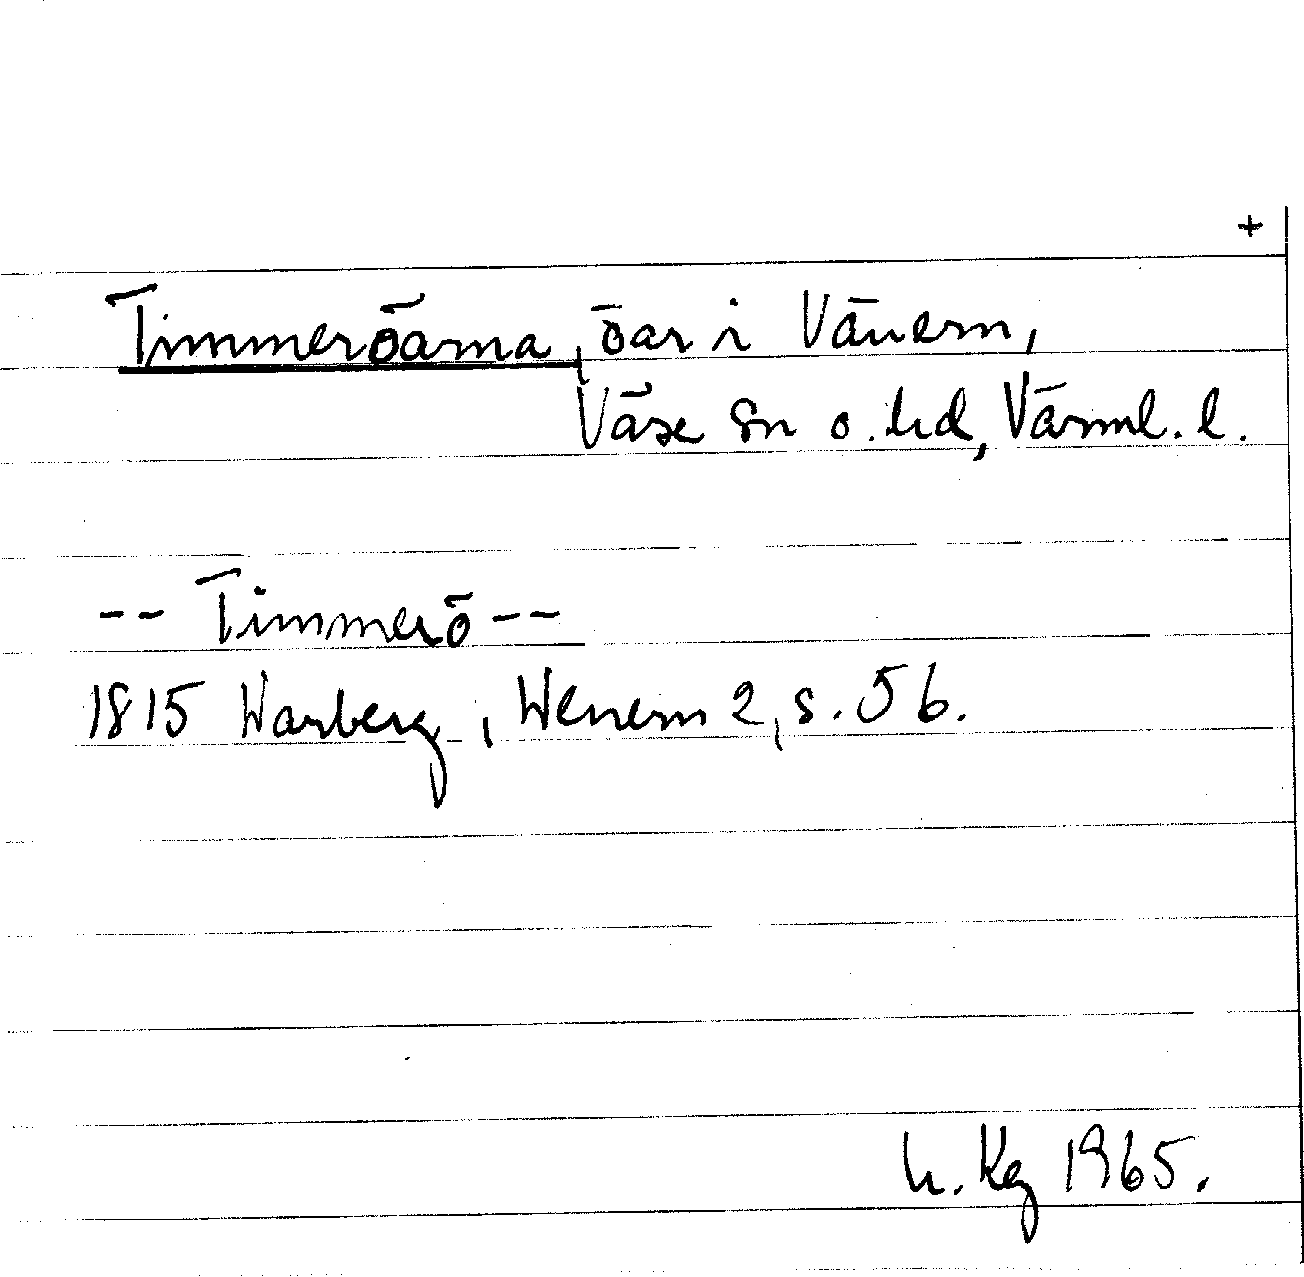 +
Timmeröarna, öar i Vänern,
Väse sn o. hd, Värml. l.
-- Timmerö --
1815 Warberg, Wenern 2, s. 56.
h. Kg 1965.